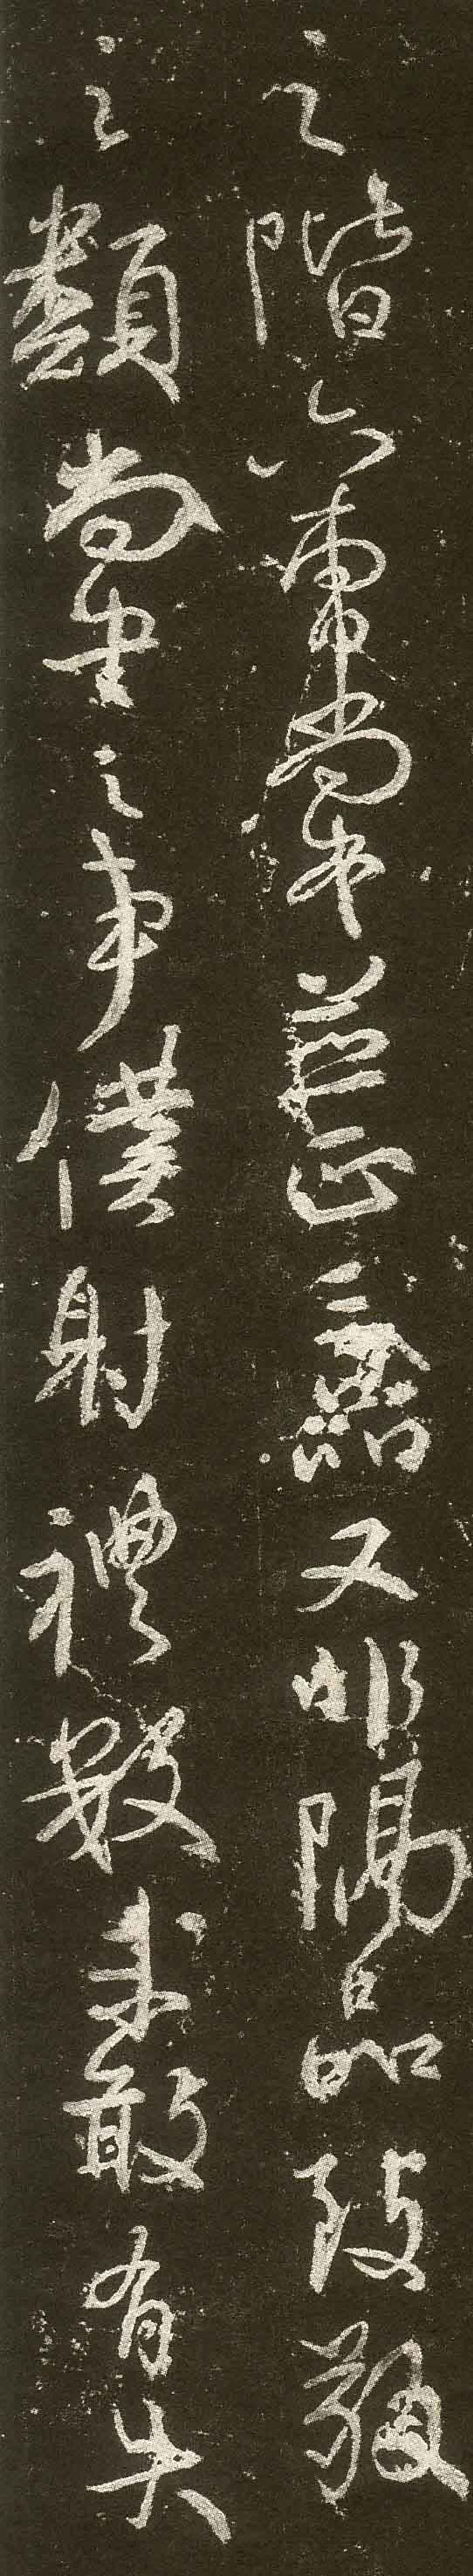 之階六曹尚書並正三品又非隔品致敬
之類尚書之事僕射禮數未敢有失